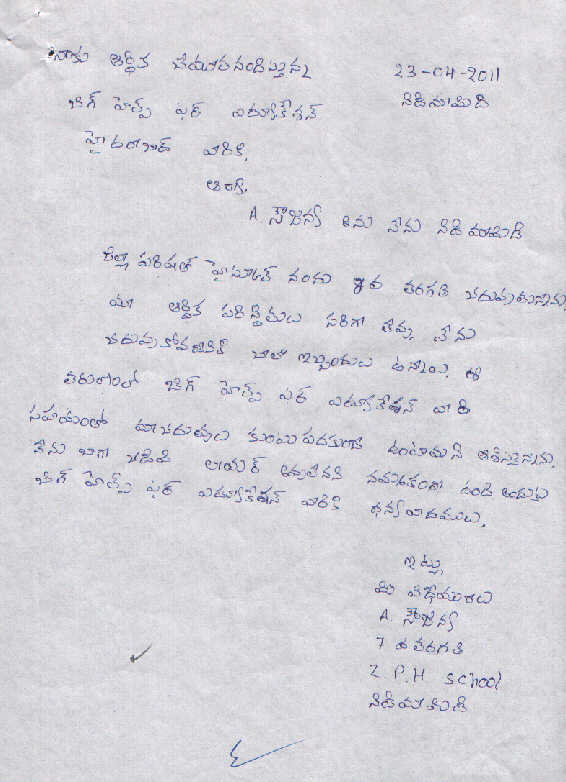 నాకు ఆర్థిక చేయూతనందిస్తున్న
23-04-2011
బిగ్ హెల్ప్ ఫర్ ఎడ్యుకేషన్
నిడిమాముడి
హైదరాబాద్ వారికి,
ఆంధ్ర.
A. సౌజన్య అను నేను నిడిమాముడి
జిల్లా పరిషత్ హైస్కూల్ నందు 7వ తరగతి చదువుతున్నాను.
మా ఆర్థిక పరిస్థితులు సరిగా లేవు నేను
చదువుకోవడానికి చాలా ఇబ్బందులు ఉన్నాయి. ఈ
తరుణంలో బిగ్ హెల్ప్ ఫర్ ఎడ్యుకేషన్ వారి
సహయంలో మా చదువులు కుంటుపడకుండా ఉంటాయని ఆశిస్తున్నాను.
నేను బాగా చదివి లాయర్ అవ్వాలని నమ్మకంగా ఉంది అందుకు
బిగ్ హెల్ప్ ఫర్ ఎడ్యుకేషన్ వారికి ధన్యవాదములు.
ఇట్లు
మీ విధేయురాలు
A. సౌజన్య
7 వ తరగతి
Z.P.H school
నిడిమాముడి